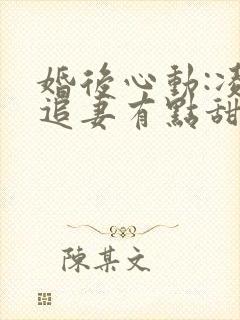 婚後心動:凌
追妻有點甜
陳某文